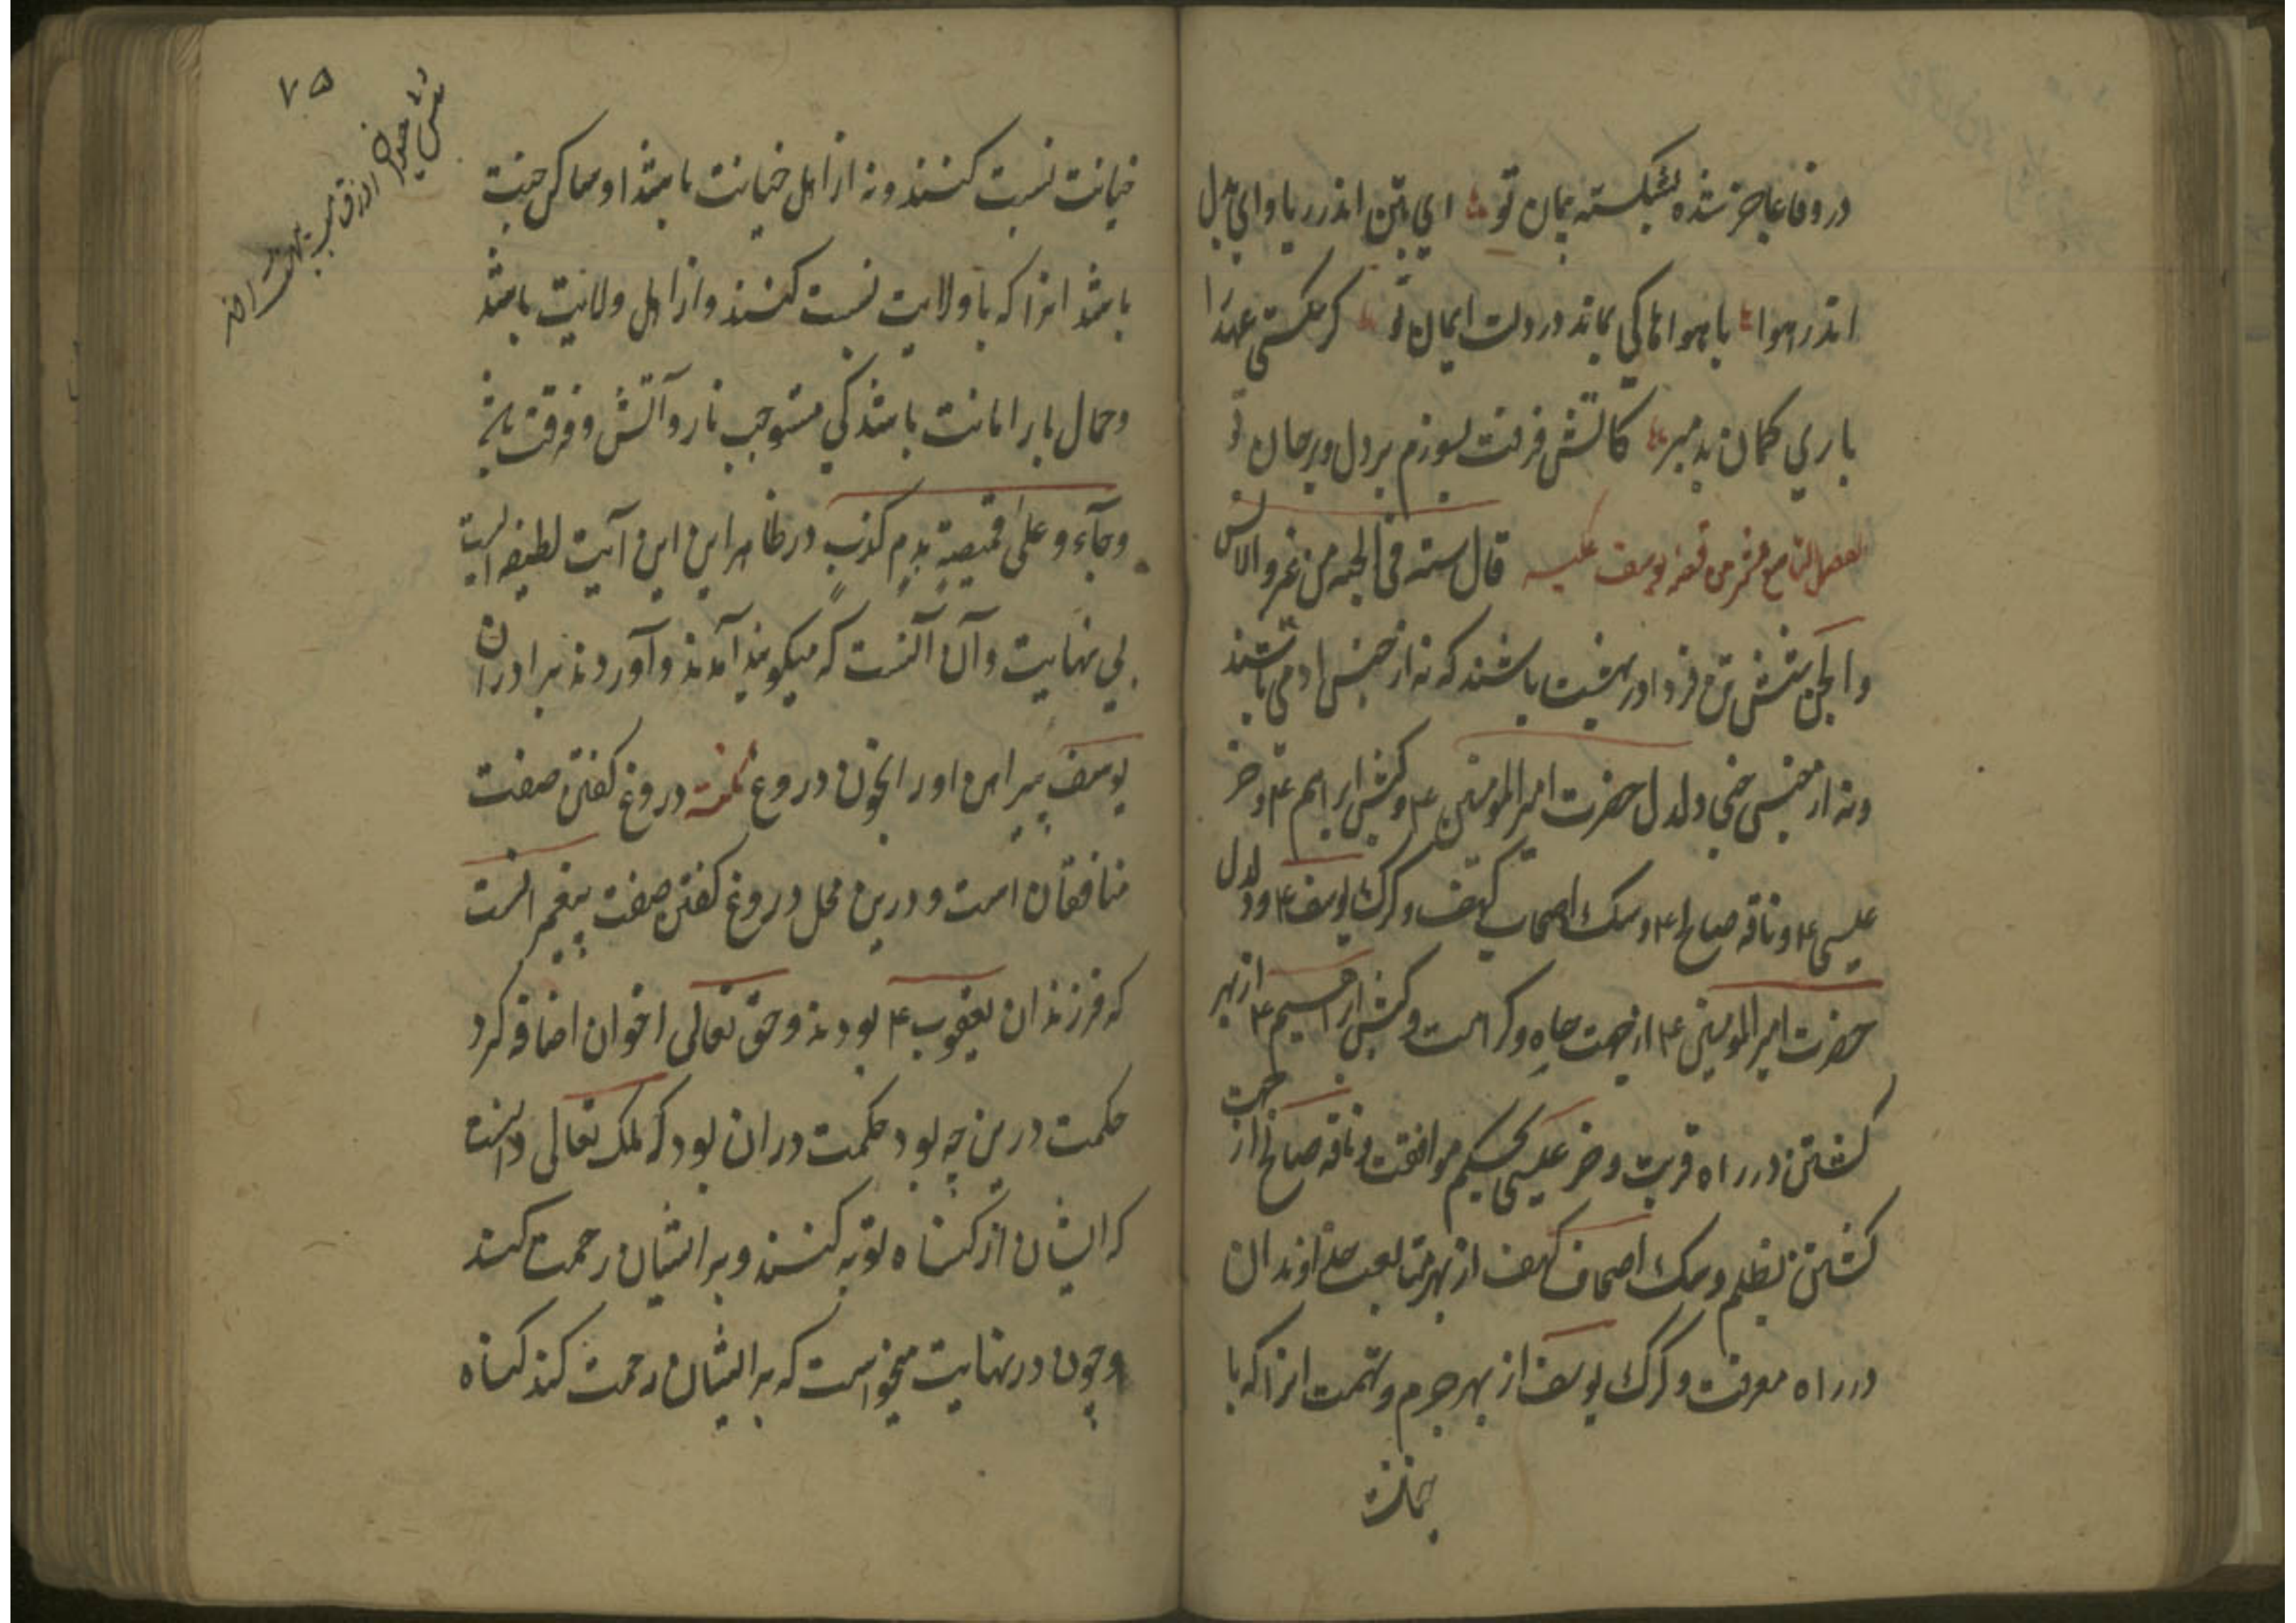 در وفا عاجز شده بشکسته پیمان تو ای بتن اندر ریا و ای بدل
اندر هوا با هواها کی بماند دولت ایمان تو کر شکستی عهد ما
باری کمان بد مبر کاتش فرقت بسوزم بر دل و بر جان تو
الفصل التاسع عشر من قصه یوسف علیه قال سته فی الجنه من غیر الانس
و الجن شش تن فردا در بهشت باشند که نه از جنس آدمی باشند
و نه از جنس جنی دلدل حضرت امیر المومنین ع و کبش ابراهیم ع و خر
عیسی ع و ناقه صالح ع و سک اصحاب کهف و کرک یوسف ع و دلدل
حضرت امیر المومنین ع از جهت جاه و کرامت و کبش ابراهیم ع از بهر
کشتن در راه قربت و خر عیسی بحکم موافقت و ناقه صالح از جهت
کشتن بظلم و سک اصحاب کهف از بهر متابعت خداوندان
در راه معرفت و کرک یوسف از بهر جرم و تهمت انرا که با
بخیانت
۷۵
شش حیوان
خیانت نسبت کنند و نه از اهل خیانت باشد او ساکن جنت
باشد انرا که با ولایت نسبت کنند و از اهل ولایت باشد
و حمال بار امانت باشد کی مستوجب نار و آتش و فرقت باشد
وجآءو علی قمیصه بدم کذب در ظاهر این این آیت لطیفه ایست
بی نهایت و آن آنست که میکویند آمدند و آوردند برادران
یوسف پیراهن او را بخون دروغ نکته دروغ کفتن صفت
منافقان است و درین محل دروغ کفتن صفت پیغمبرانست
که فرزندان یعقوب ع بودند و حق تعالی اخوان اضافه کرد
حکمت درین چه بود حکمت دران بود که ملک تعالی دانست
که ایشان از کناه توبه کنند و بر ایشان رحمت کند
و چون در نهایت میخواست که بر ایشان رحمت کند کناه